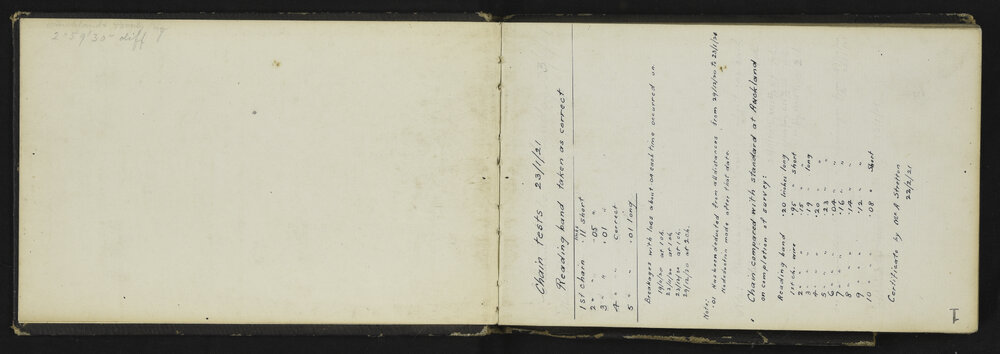 2° 59' 30" diff
Chain tests 23/1/21
Reading band taken as correct
links
1st chain .11 short
2 " " .05 "
3 " " .01 "
4 " " Correct
5 " " .01 long
Breakages with loss about on each time occurred on
19/1/20 at 1 ch.
22/12/20 at 1 ch
23/12/20 at 1 ch.
29/12/20 at 2 ch.
Note:
.01 Has been deducted from all distances from 29/12/20 to 23/1/20
No deduction made after that date.
Chain compared with standard at Auckland
on completion of survey:
Reading band .20 links long
1st ch. wire .95 " short
2 " " .15 " "
3 " " .19 " long
4 " " .20 " "
5 " " .23 " "
6 " " .04 " "
7 " " .16 " "
8 " " .14 " "
9 " " .12 " "
10 " " .08 " Short
Certificate by Mr A Stretton
22/2/21
1